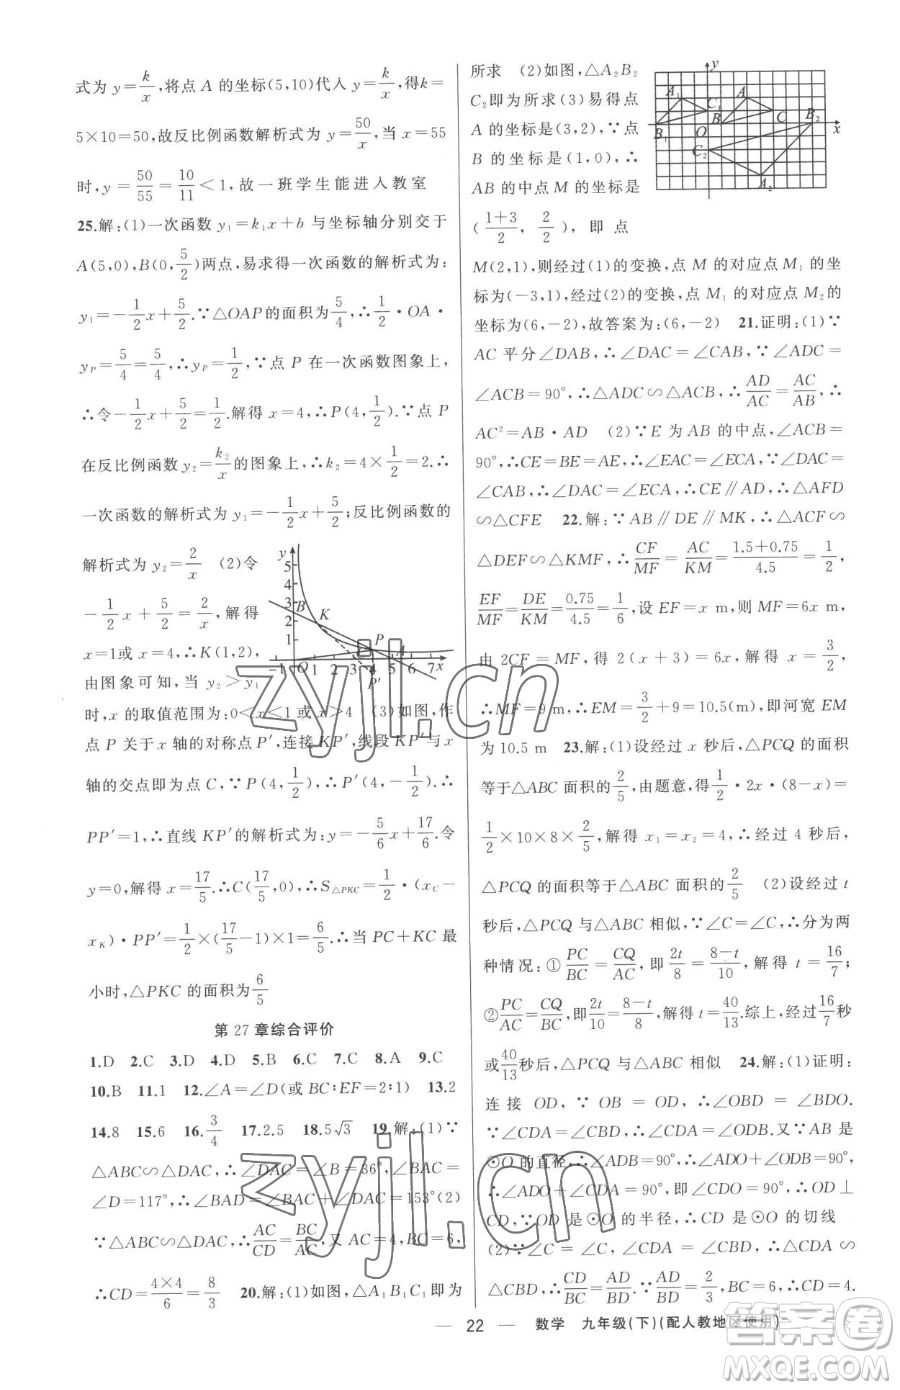 式为 y=k/x,将点 A 的坐标(5,10)代入 y=k/x,得 k=
5×10=50,故反比例函数解析式为 y=50/x,当 x=55
时,y=50/55=10/11<1,故一班学生能进入教室
25.解:(1)一次函数 y₁=k₁x+b 与坐标轴分别交于
A(5,0),B(0,5/2)两点,易求得一次函数的解析式为:
y₁=-1/2x+5/2.∵△OAP的面积为5/4,∴1/2·OA·
yP=5/4=5/4,∴yP=1/2,∵点 P 在一次函数图象上,
∴令-1/2x+5/2=1/2.解得 x=4,∴P(4,1/2).∵点 P
在反比例函数 y₂=k₂/x的图象上,∴k₂=4×1/2=2.∴
一次函数的解析式为 y₁=-1/2x+5/2;反比例函数的
解析式为 y₂=2/x (2)令
-1/2x+5/2=2/x,解得
x=1或 x=4,∴K(1,2),
由图象可知,当 y₂>y₁
时,x 的取值范围为:0<x<1 或 x>4 (3)如图,作
点 P 关于 x 轴的对称点 P′,连接 KP′,线段 KP′与 x
轴的交点即为点 C,∵P(4,1/2).∴P′(4,-1/2).∴
PP′=1,∴直线 KP′的解析式为:y=-5/6x+17/6.令
y=0,解得 x=17/5.∴C(17/5,0),∴S△PKC=1/2·(xC-
xK)·PP′=1/2×(17/5-1)×1=6/5.∴当 PC+KC 最
小时,△PKC 的面积为6/5
y
5
4
3
2
1
B
K
P
A
O
P′
-1 1 2 3 4 5 6 7 x
第 27 章综合评价
1.D 2.C 3.D 4.D 5.B 6.C 7.C 8.A 9.C
10.B 11.1 12.∠A=∠D(或 BC∶EF=2∶1) 13.2
14.8 15.6 16.3/4 17.2.5 18.5√3 19.解:(1)∵
△ABC∽△DAC,∴∠DAC=∠B=36°,∠BAC=
∠D=117°,∴∠BAD=∠BAC+∠DAC=153°(2)
∵△ABC∽△DAC,∴AC/CD=BC/AC,又 AC=4,BC=6,
∴CD=4×4/6=8/3 20.解:(1)如图,△A₁B₁C₁即为
所求 (2)如图,△A₂B₂
C₂即为所求(3)易得点
A 的坐标是(3,2),∵点
B 的坐标是(1,0),∴
AB 的中点 M 的坐标是
(1+3/2, 2/2), 即 点
y
A₁
A
C₁
B₁
O
B
C
B₂
x
C₂
A₂
M(2,1),则经过(1)的变换,点 M 的对应点 M₁ 的坐
标为(-3,1),经过(2)的变换,点 M₁ 的对应点 M₂的
坐标为(6,-2),故答案为:(6,-2) 21.证明:(1)∵
AC 平分∠DAB,∴∠DAC=∠CAB,∵∠ADC
=∠ACB=90°,∴△ADC∽△ACB,∴AD/AC=AC/AB,∴
AC²=AB·AD (2)∵E 为 AB 的中点,∠ACB=
90°,∴CE=BE=AE,∴∠EAC=∠ECA,∵∠DAC=
∠CAB,∴∠DAC=∠ECA,∴CE∥AD,∴△AFD
∽△CFE 22.解:∵AB∥DE∥MK,∴△ACF∽
△DEF∽△KMF,∴CF/MF=AC/KM=1.5+0.75/4.5=1/2,
EF/MF=DE/KM=0.75/4.5=1/6,设 EF=x m,则 MF=6x m,
由 2CF=MF,所以得 2(x+3)=6x,解得 x=3/2
∴MF=9 m,∴EM=3/2+9=10.5(m),即河宽 EM
为 10.5 m 23.解:(1)设经过 x 秒后,△PCQ 的面积
等于△ABC 面积的2/5,由题意,得1/2·2x·(8-x)=
1/2×10×8×2/5,解得 x₁=x₂=4,∴经过 4 秒后,
△PCQ 的面积等于△ABC 面积的2/5 (2)设经过 t
秒后,△PCQ 与△ABC 相似,∵∠C=∠C,∴分为两
种情况:①PC/BC=CQ/AC,即2t/8=8-t/10,解得 t=16/7;
②PC/AC=CQ/BC,即2t/10=8-t/8,解得 t=40/13.经过16/7秒
或40/13秒后,△PCQ 与△ABC 相似 24.解:(1)证明:
连接 OD,∵OB=OD,∴∠OBD=∠BDO.
∵∠CDA=∠CBD,∴∠CDA=∠ODB.又∵AB 是
⊙O 的直径,∴∠ADB=90°,∴∠ADO+∠ODB=
90°,∴∠ADO+∠CDA=90°,即∠CDO=90°,∴OD⊥
CD,∵OD 是⊙O 的半径,∴CD 是⊙O 的切线
(2)∵∠C=∠C,∠CDA=∠CBD,∴△CDA∽
△CBD,∴CD/BC=AD/BD,∵AD/BD=2/3,BC=6,∴CD=4.
— 22 — 数学 九年级(下)(配人教地区使用)
zyjl.cn
zyjl.cn
答案圈
MXQE.COM